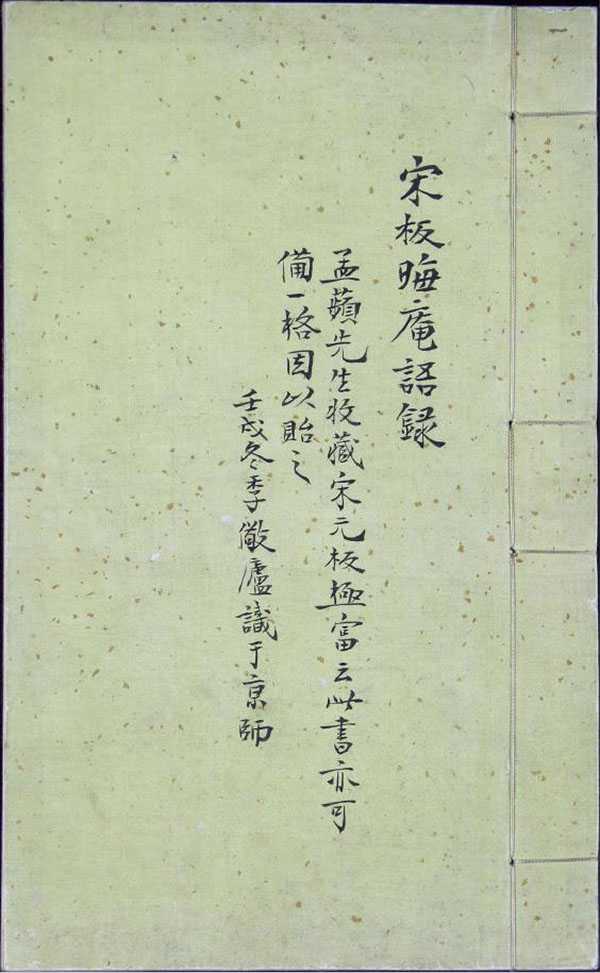 宋板晦庵語録
孟蘋先生收藏宋元板極富云此書亦可
備一格因以貽之
壬戌冬季儼廬識于京師
一